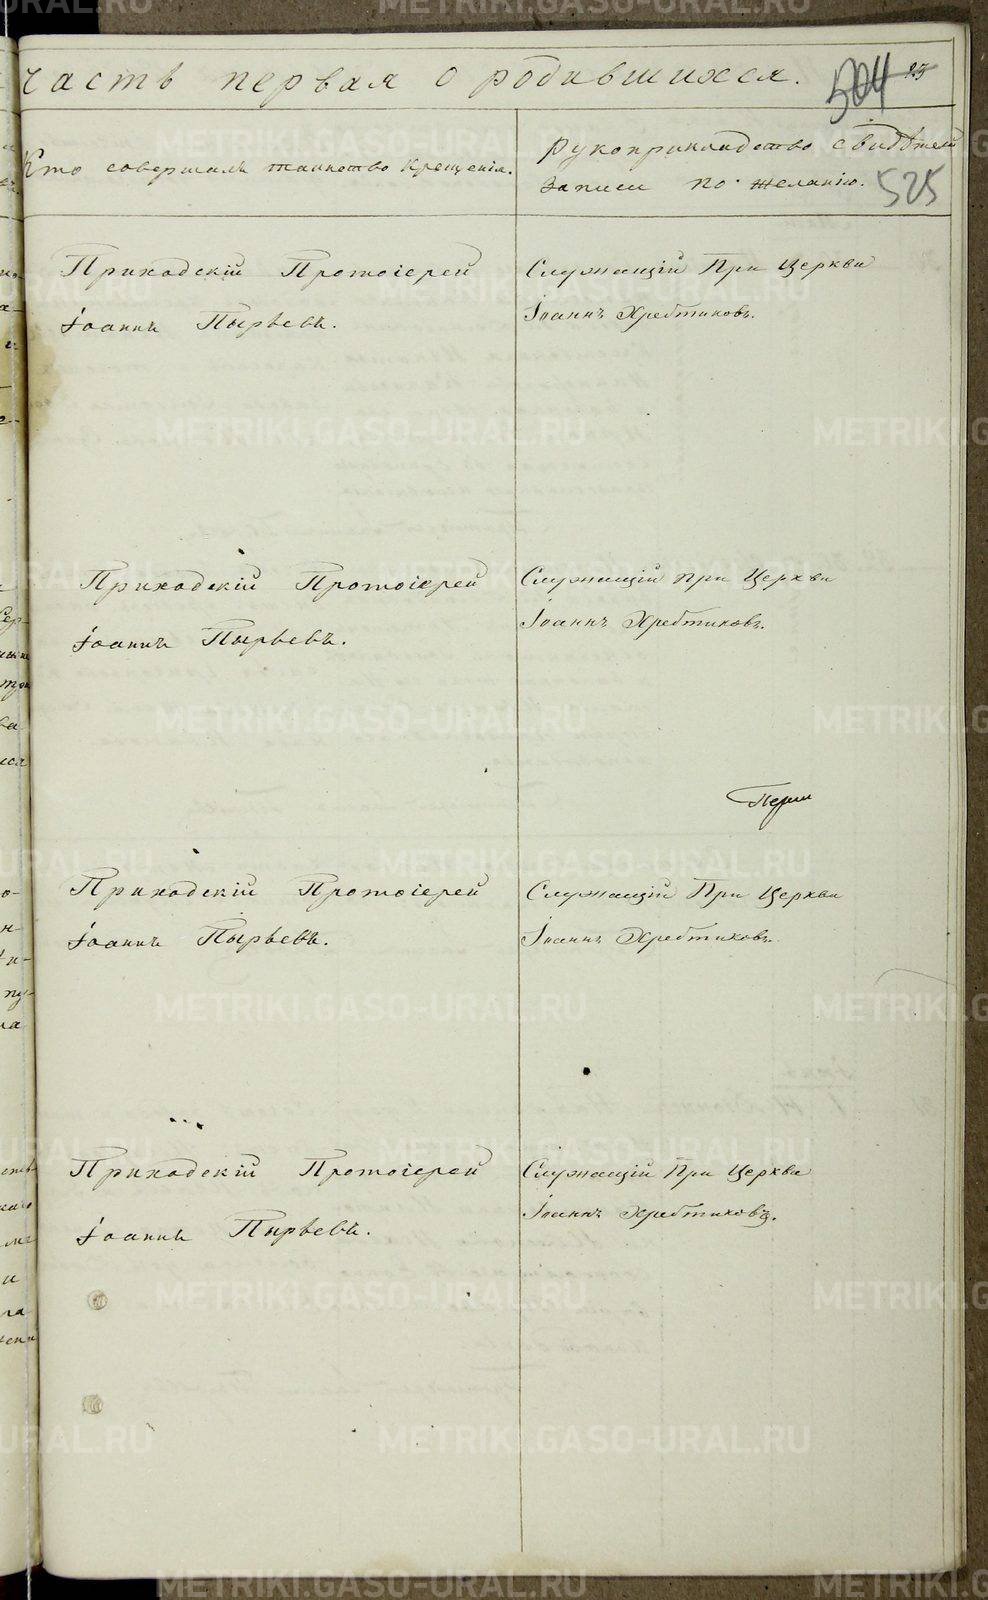 часть первая о родившихся.
504 23
Кто совершалъ таинство крещенія.
рукоприкладство свидѣтелей
записи по желанію.
525
Приходскій Протоіерей
Іоаннъ Пырьевъ.
Служащій При Церкви
Іоаннъ Хребтиковъ.
Приходскій Протоіерей
Іоаннъ Пырьевъ.
Служащій при Церкви
Іоаннъ Хребтиковъ.
Приходскій Протоіерей
Іоаннъ Пырьевъ.
Служащій При Церкви
Іоаннъ Хребтиковъ.
Приходскій Протоіерей
Іоаннъ Пырьевъ.
Служащій При Церкви
Іоаннъ Хребтиковъ.
METRIKI.GASO-URAL.RU